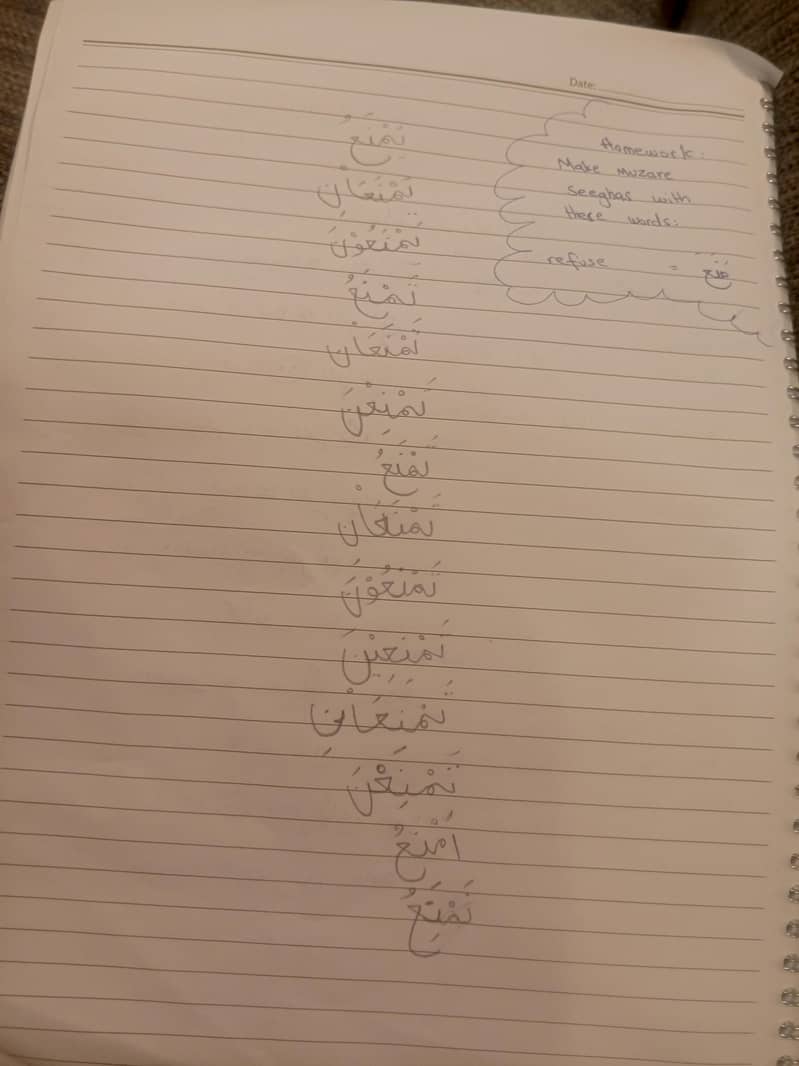 Date:
Homework:
Make muzare
Seeghas with
these words:
refuse = مَنَعَ
يَمْنَعُ
يَمْنَعَانِ
يَمْنَعُوْنَ
تَمْنَعُ
تَمْنَعَانِ
يَمْنَعْنَ
تَمْنَعُ
تَمْنَعَانِ
تَمْنَعُوْنَ
تَمْنَعِيْنَ
تَمْنَعَانِ
تَمْنَعْنَ
اَمْنَعُ
نَمْنَعُ